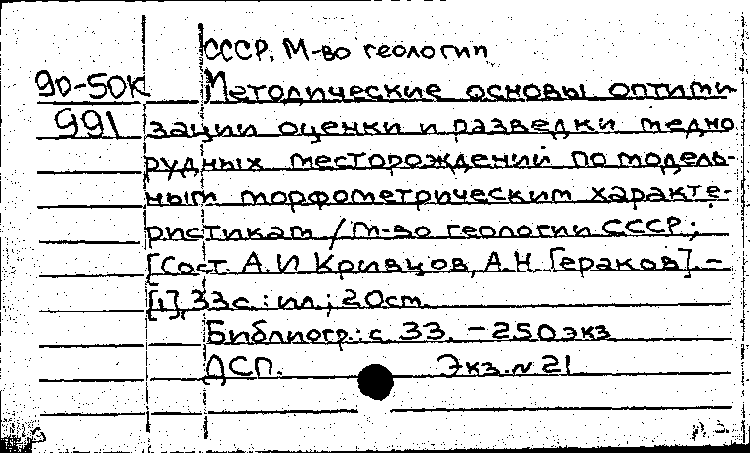 СССР. М-во геологии
90-50К Методические основы оптими
991 зации оценки и разведки медно
рудных месторождений по модель-
ным морфометрическим характе-
ристикам / М-во геологии СССР;
[Сост. А.И Кривцов, А.Н. Гераков]. -
[1], 33 с. : ил.; 20 см.
Библиогр.: с. 33. - 250 экз
ДСП. Экз. N 21